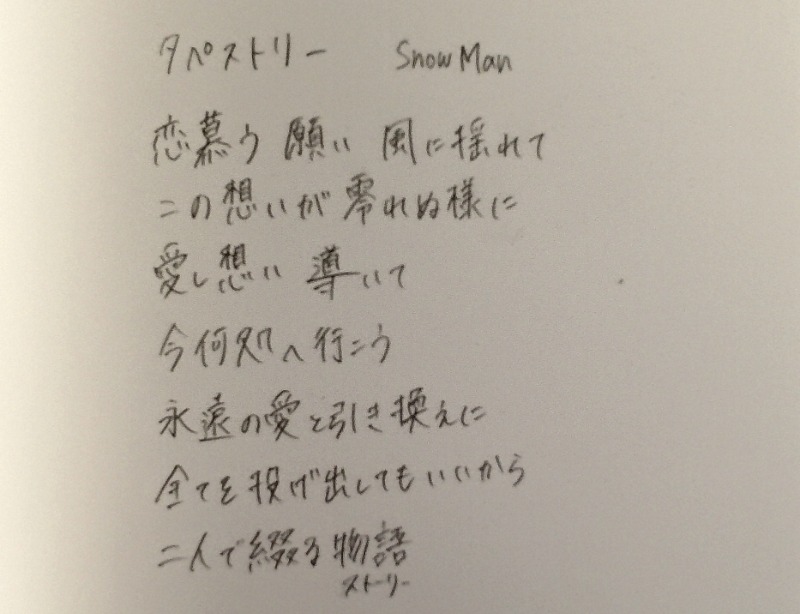 タペストリー Snow Man
恋慕う 願い 風に揺れて
この想いが零れぬ様に
愛し想い 導いて
今何処へ行こう
永遠の愛と引き換えに
全てを投げ出してもいいから
二人で綴る物語
ストーリー